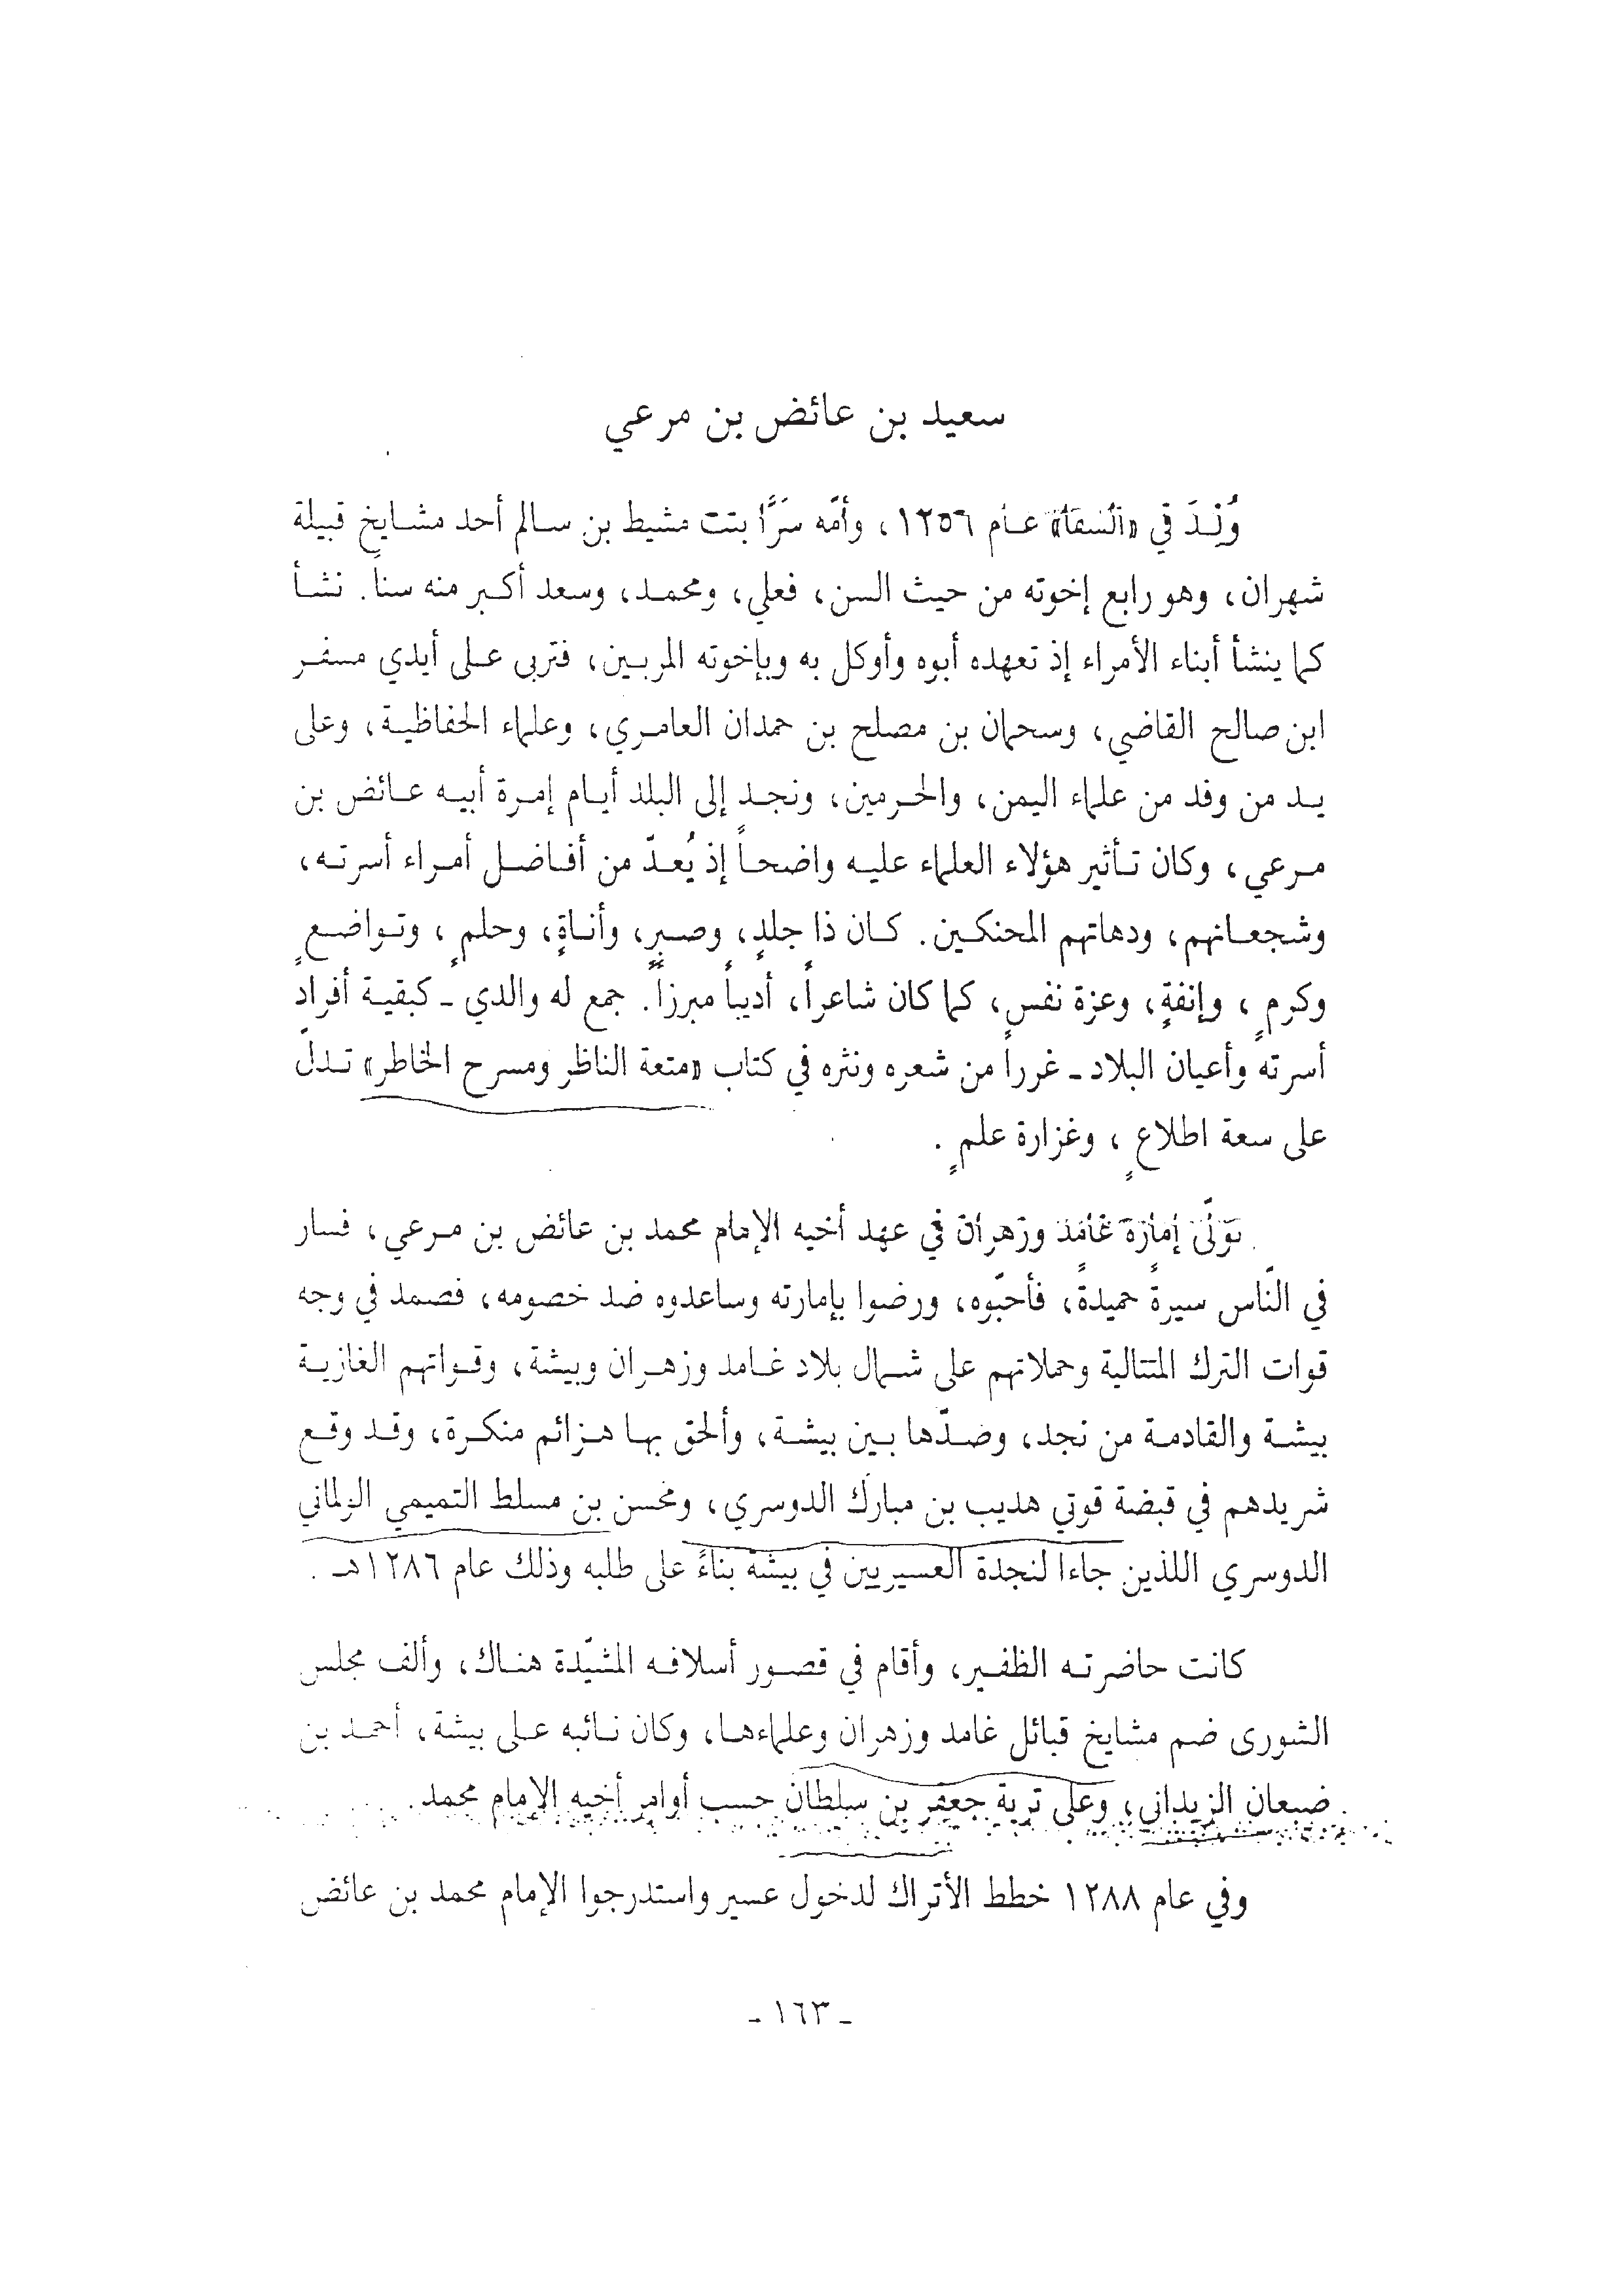 سعيد بن عائض بن مرعي
وُلِدَ في «السقا» عام ١٢٥٦، وأمّه سرّاً بنت مشيط بن سالم أحد مشايخ قبيلة
شهران، وهو رابع إخوته من حيث السن، فعلي، ومحمد، وسعد أكبر منه سناً. نشأ
كما ينشأ أبناء الأمراء إذ تعهده أبوه وأوكل به وبإخوته المربين، فتربى على أيدي مسفر
ابن صالح القاضي، وسحمان بن مصلح بن حمدان العامري، وعلماء الحفاظية، وعلى
يد من وفد من علماء اليمن، والحرمين، ونجد إلى البلد أيام إمرة أبيه عائض بن
مرعي، وكان تأثير هؤلاء العلماء عليه واضحاً إذ يُعدّ من أفاضل أمراء أسرته،
وشجعانهم، ودهاتهم المحنكين. كان ذا جلدٍ، وصبرٍ، وأناةٍ، وحلمٍ، وتواضعٍ
وكرمٍ، وإنفةٍ، وعزة نفسٍ، كما كان شاعراً، أديباً مبرزاً. جمع له والدي - كبقية أفراد
أسرته وأعيان البلاد - غرراً من شعره ونثره في كتاب «متعة الناظر ومسرح الخاطر» تدلّ
على سعة اطلاعٍ، وغزارة علمٍ.
تولّى إمارة غامد وزهران في عهد أخيه الإمام محمد بن عائض بن مرعي، فسار
في النّاس سيرةً حميدةً، فأحبّوه، ورضوا بإمارته وساعدوه ضد خصومه، فصمد في وجه
قوات الترك المتتالية وحملاتهم على شمال بلاد غامد وزهران وبيشة، وقواتهم الغازية
بيشة والقادمة من نجد، وصدّها بين بيشة، وألحق بها هزائم منكرة، وقد وقع
شريدهم في قبضة قوتي هديب بن مبارك الدوسري، ومحسن بن مسلط التميمي الزماني
الدوسري اللذين جاءا لنجدة العسيريين في بيشة بناءً على طلبه وذلك عام ١٢٨٦هـ.
كانت حاضرته الظفير، وأقام في قصور أسلافه المشيّدة هناك، وألف مجلس
الشورى ضم مشايخ قبائل غامد وزهران وعلماءها، وكان نائبه على بيشة، أحمد بن
ضبعان الزيداني، وعلى تربة جعفر بن سلطان حسب أوامر أخيه الإمام محمد.
وفي عام ١٢٨٨ خطط الأتراك لدخول عسير واستدرجوا الإمام محمد بن عائض
- ١٦٣ -